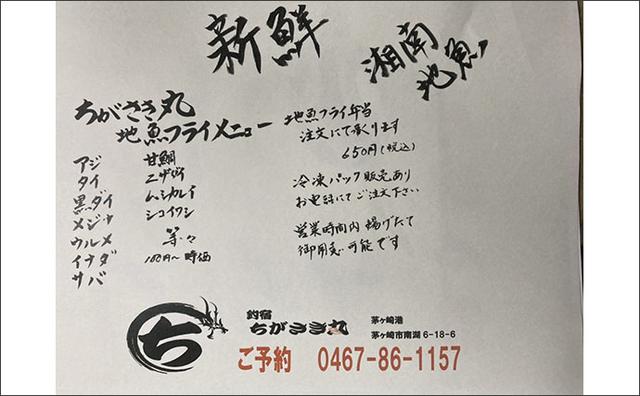 新鮮
湘南
地魚
ちがさき丸
地魚フライメニュー
アジ
タイ
黒ダイ
メジナ
ウルメ
イナダ
サバ
甘鯛
ニザダイ
ムシカレイ
シコイワシ
等々
100円〜時価
地魚フライ弁当
注文にて承ります
650円(税込)
冷凍パック販売あり
お電話にてご注文下さい
営業時間内揚げたて
御用意可能です
ち
釣宿
ちがさき丸
茅ヶ崎港
茅ヶ崎市南湖 6-18-6
ご予約 0467-86-1157